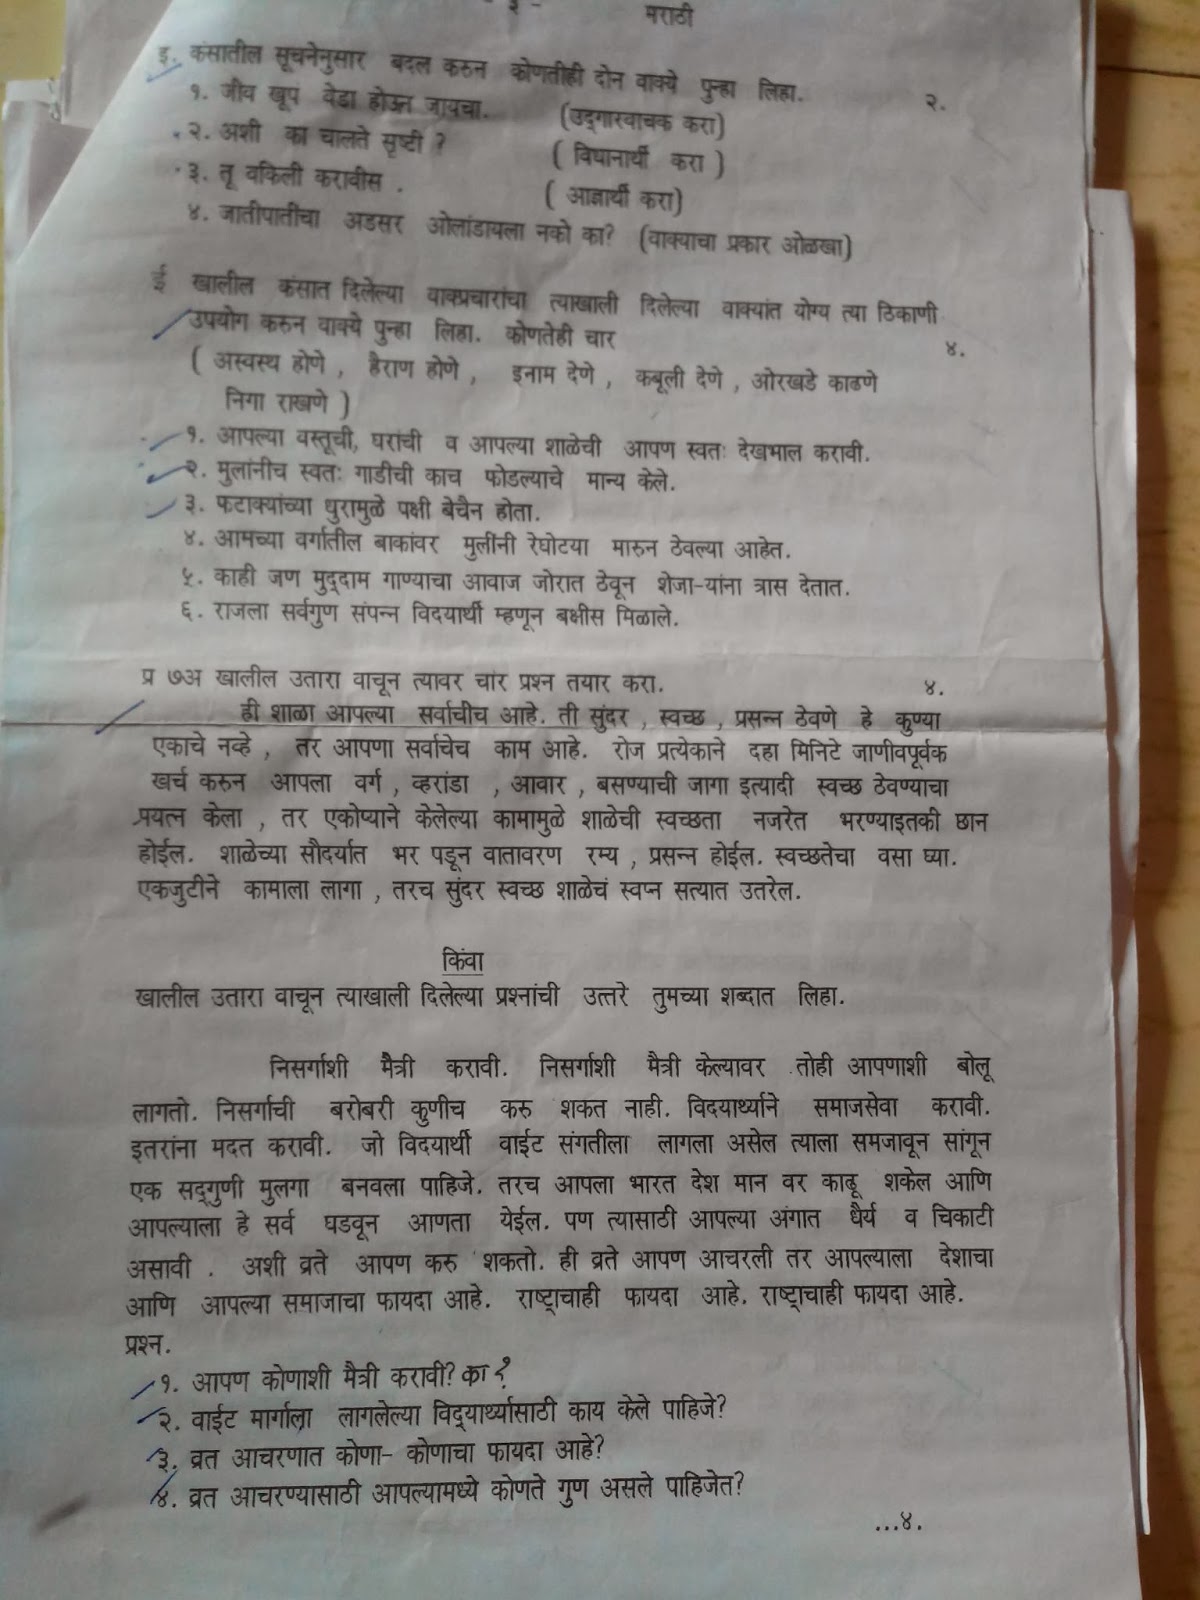 - ३ -
मराठी
इ. कंसातील सूचनेनुसार बदल करुन कोणतीही दोन वाक्ये पुन्हा लिहा. २.
१. जीव खूप वेडा होऊन जायचा. (उद्‌गारवाचक करा)
२. अशी का चालते सृष्टी ? ( विधानार्थी करा )
३. तू वकिली करावीस . ( आज्ञार्थी करा)
४. जातीपातीचा अडसर ओलांडायला नको का? (वाक्याचा प्रकार ओळखा)
ई खालील कंसात दिलेल्या वाक्प्रचारांचा त्याखाली दिलेल्या वाक्यांत योग्य त्या ठिकाणी
उपयोग करुन वाक्ये पुन्हा लिहा. कोणतेही चार ४.
( अस्वस्थ होणे , हैराण होणे , इनाम देणे , कबूली देणे , ओरखडे काढणे
निगा राखणे )
१. आपल्या वस्तूची, घराची व आपल्या शाळेची आपण स्वतः देखभाल करावी.
२. मुलांनीच स्वतः गाडीची काच फोडल्याचे मान्य केले.
३. फटाक्यांच्या धुरामुळे पक्षी बेचैन होता.
४. आमच्या वर्गातील बाकांवर मुलींनी रेघोटया मारुन ठेवल्या आहेत.
५. काही जण मुद्‌दाम गाण्याचा आवाज जोरात ठेवून शेजा-यांना त्रास देतात.
६. राजला सर्वगुण संपन्न विदयार्थी म्हणून बक्षीस मिळाले.
प्र ७अ खालील उतारा वाचून त्यावर चार प्रश्न तयार करा. ४.
ही शाळा आपल्या सर्वाचीच आहे. ती सुंदर , स्वच्छ , प्रसन्न ठेवणे हे कुण्या
एकाचे नव्हे , तर आपणा सर्वाचेच काम आहे. रोज प्रत्येकाने दहा मिनिटे जाणीवपूर्वक
खर्च करुन आपला वर्ग , व्हरांडा , आवार , बसण्याची जागा इत्यादी स्वच्छ ठेवण्याचा
प्रयत्न केला , तर एकोप्याने केलेल्या कामामुळे शाळेची स्वच्छता नजरेत भरण्याइतकी छान
होईल. शाळेच्या सौदर्यात भर पडून वातावरण रम्य , प्रसन्न होईल. स्वच्छतेचा वसा घ्या.
एकजुटीने कामाला लागा , तरच सुंदर स्वच्छ शाळेचं स्वप्न सत्यात उतरेल.
किंवा
खालील उतारा वाचून त्याखाली दिलेल्या प्रश्नांची उत्तरे तुमच्या शब्दात लिहा.
निसर्गाशी मैत्री करावी. निसर्गाशी मैत्री केल्यावर तोही आपणाशी बोलू
लागतो. निसर्गाची बरोबरी कुणीच करु शकत नाही. विदयार्थ्याने समाजसेवा करावी.
इतरांना मदत करावी. जो विदयार्थी वाईट संगतीला लागला असेल त्याला समजावून सांगून
एक सद्‌गुणी मुलगा बनवला पाहिजे. तरच आपला भारत देश मान वर काढू शकेल आणि
आपल्याला हे सर्व घडवून आणता येईल. पण त्यासाठी आपल्या अंगात धैर्य व चिकाटी
असावी . अशी व्रते आपण करु शकतो. ही व्रते आपण आचरली तर आपल्याला देशाचा
आणि आपल्या समाजाचा फायदा आहे. राष्ट्राचाही फायदा आहे. राष्ट्राचाही फायदा आहे.
प्रश्न.
१. आपण कोणाशी मैत्री करावी? का?
२. वाईट मार्गाला लागलेल्या विद्‌यार्थ्यासाठी काय केले पाहिजे?
३. व्रत आचरणात कोणा- कोणाचा फायदा आहे?
४. व्रत आचरण्यासाठी आपल्यामध्ये कोणते गुण असले पाहिजेत?
...४.